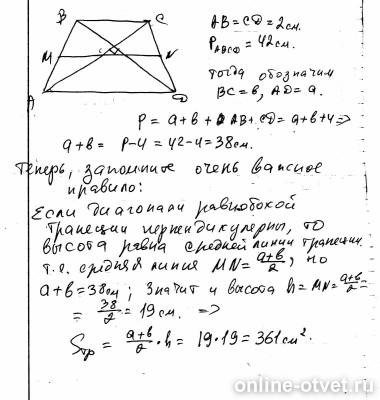 B C
M N
A D
AB = CD = 2 см.
P_ABCD = 42 см.
тогда обозначим
BC = в, AD = a.
P = a + в + AB + CD = a + в + 4 =>
a + в = P - 4 = 42 - 4 = 38 см.
Теперь, запомните очень важное
правило:
Если диагонали равнобокой
трапеции перпендикулярны, то
высота равна средней линии трапеции
т.е. средняя линия MN = (a+в)/2, но
a + в = 38 см; значит и высота h = MN = (a+в)/2 =
= 38/2 = 19 см. =>
S_тр = (a+в)/2 · h = 19 · 19 = 361 см².
online-otvet.ru